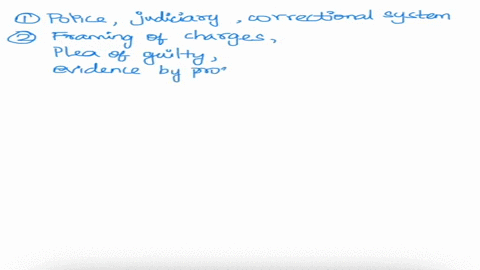 ① Police, judiciary, correctional system
② Framing of charges,
Plea of guilty,
evidence by pro